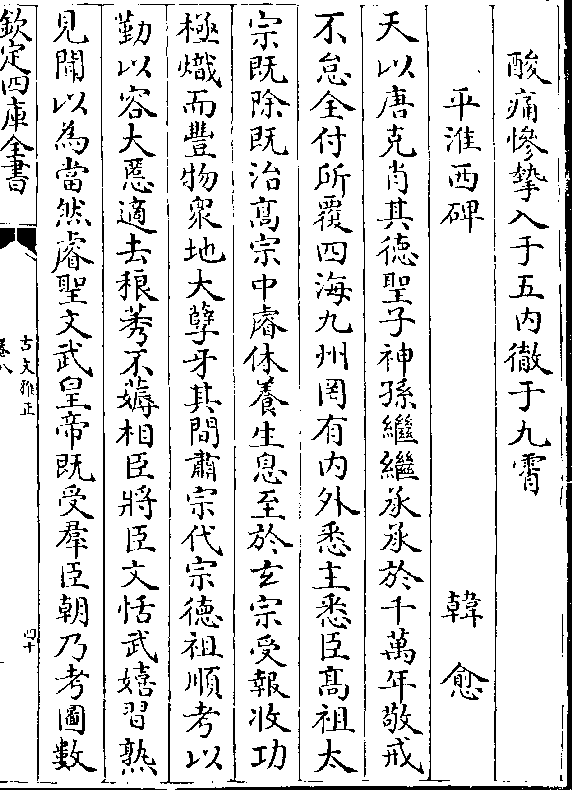 酸痛慘摯入于五内徹于九霄
平淮西碑 韓愈
天以唐克肖其德聖子神孫繼繼承承於千萬年敬戒
不怠全付所覆四海九州罔有内外悉主悉臣髙祖太
宗既除既治髙宗中睿休養生息至於玄宗受報收功
極熾而豐物衆地大孽牙其間肅宗代宗德祖順考以
勤以容大慝適去稂莠不薅相臣將臣文恬武嬉習熟
見聞以為當然睿聖文武皇帝既受羣臣朝乃考圖數
欽定四庫全書
古文雅正
卷八
四十